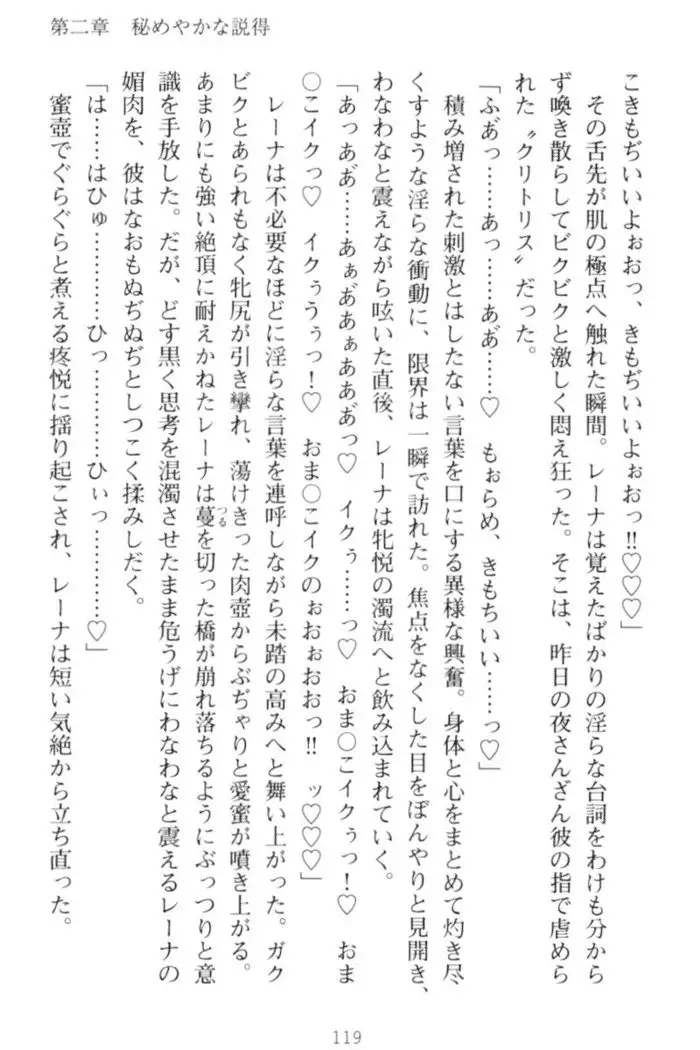 第二章　秘めやかな説得
こきもぢいいよぉおっ、きもぢいいよぉおっ!!♡♡♡」
その舌先が肌の極点へ触れた瞬間。レーナは覚えたばかりの淫らな台詞をわけも分から
ず喚き散らしてビクビクと激しく悶え狂った。そこは、昨日の夜さんざん彼の指で虐めら
れた〝クリトリス〟だった。
「ふあ゛っ……あっ……ああ゛……♡　もぉらめ、きもちいい……っ♡」
積み増された刺激とはしたない言葉を口にする異様な興奮。身体と心をまとめて灼き尽
くすような淫らな衝動に、限界は一瞬で訪れた。焦点をなくした目をぼんやりと見開き、
わなわなと震えながら呟いた直後、レーナは牝悦の濁流へと飲み込まれていく。
「あっああ゛……あぁあ゛あぁああぁ゛っ♡　イクぅ……っ♡　おま○こイクぅっ！♡　おま
○こイクっ♡　イクぅうぅっ！♡　おま○こイクのぉおぉおおっ!!　ッ♡♡♡」
レーナは不必要なほどに淫らな言葉を連呼しながら未踏の高みへと舞い上がった。ガク
ビクとあられもなく牝尻が引き攣れ、蕩けきった肉壺からぶぢゃりと愛蜜が噴き上がる。
あまりにも強い絶頂に耐えかねたレーナは蔓つるを切った橋が崩れ落ちるようにぶっつりと意
識を手放した。だが、どす黒く思考を混濁させたまま危うげにわなわなと震えるレーナの
媚肉を、彼はなおもぬぢぬぢとしつこく揉みしだく。
「は……はひゅ…………ひっ…………ひぃっ…………♡」
蜜壺でぐらぐらと煮える疼悦に揺り起こされ、レーナは短い気絶から立ち直った。
119